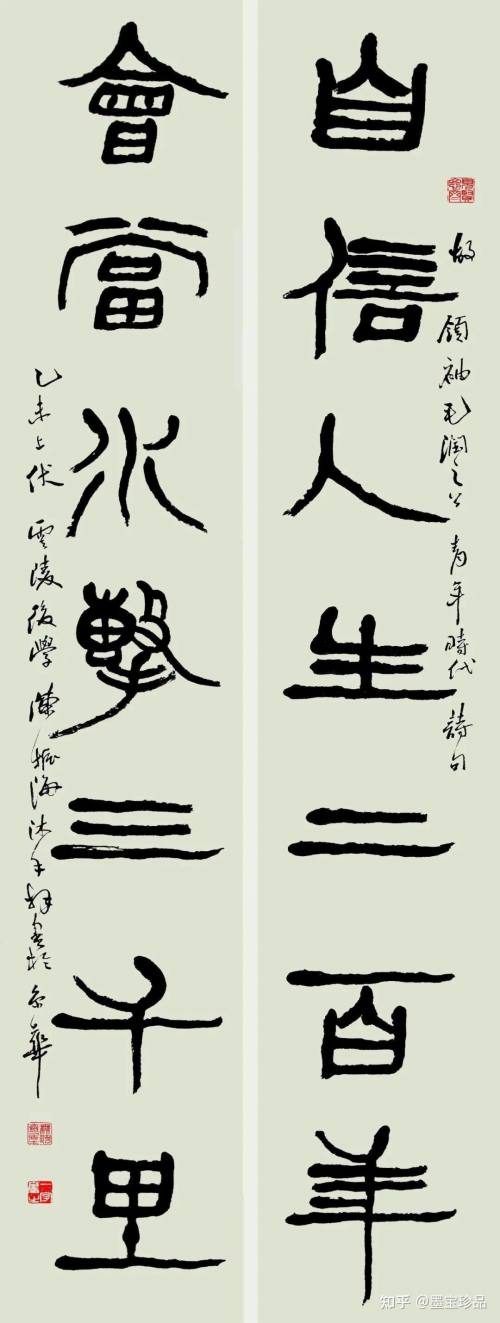 領袖毛潤之公 青年時代 詩句
自信人生二百年
會當水擊三千里
乙未上伏 雲陵後學 陳振海沐手書於京華
知乎 @墨宝珍品